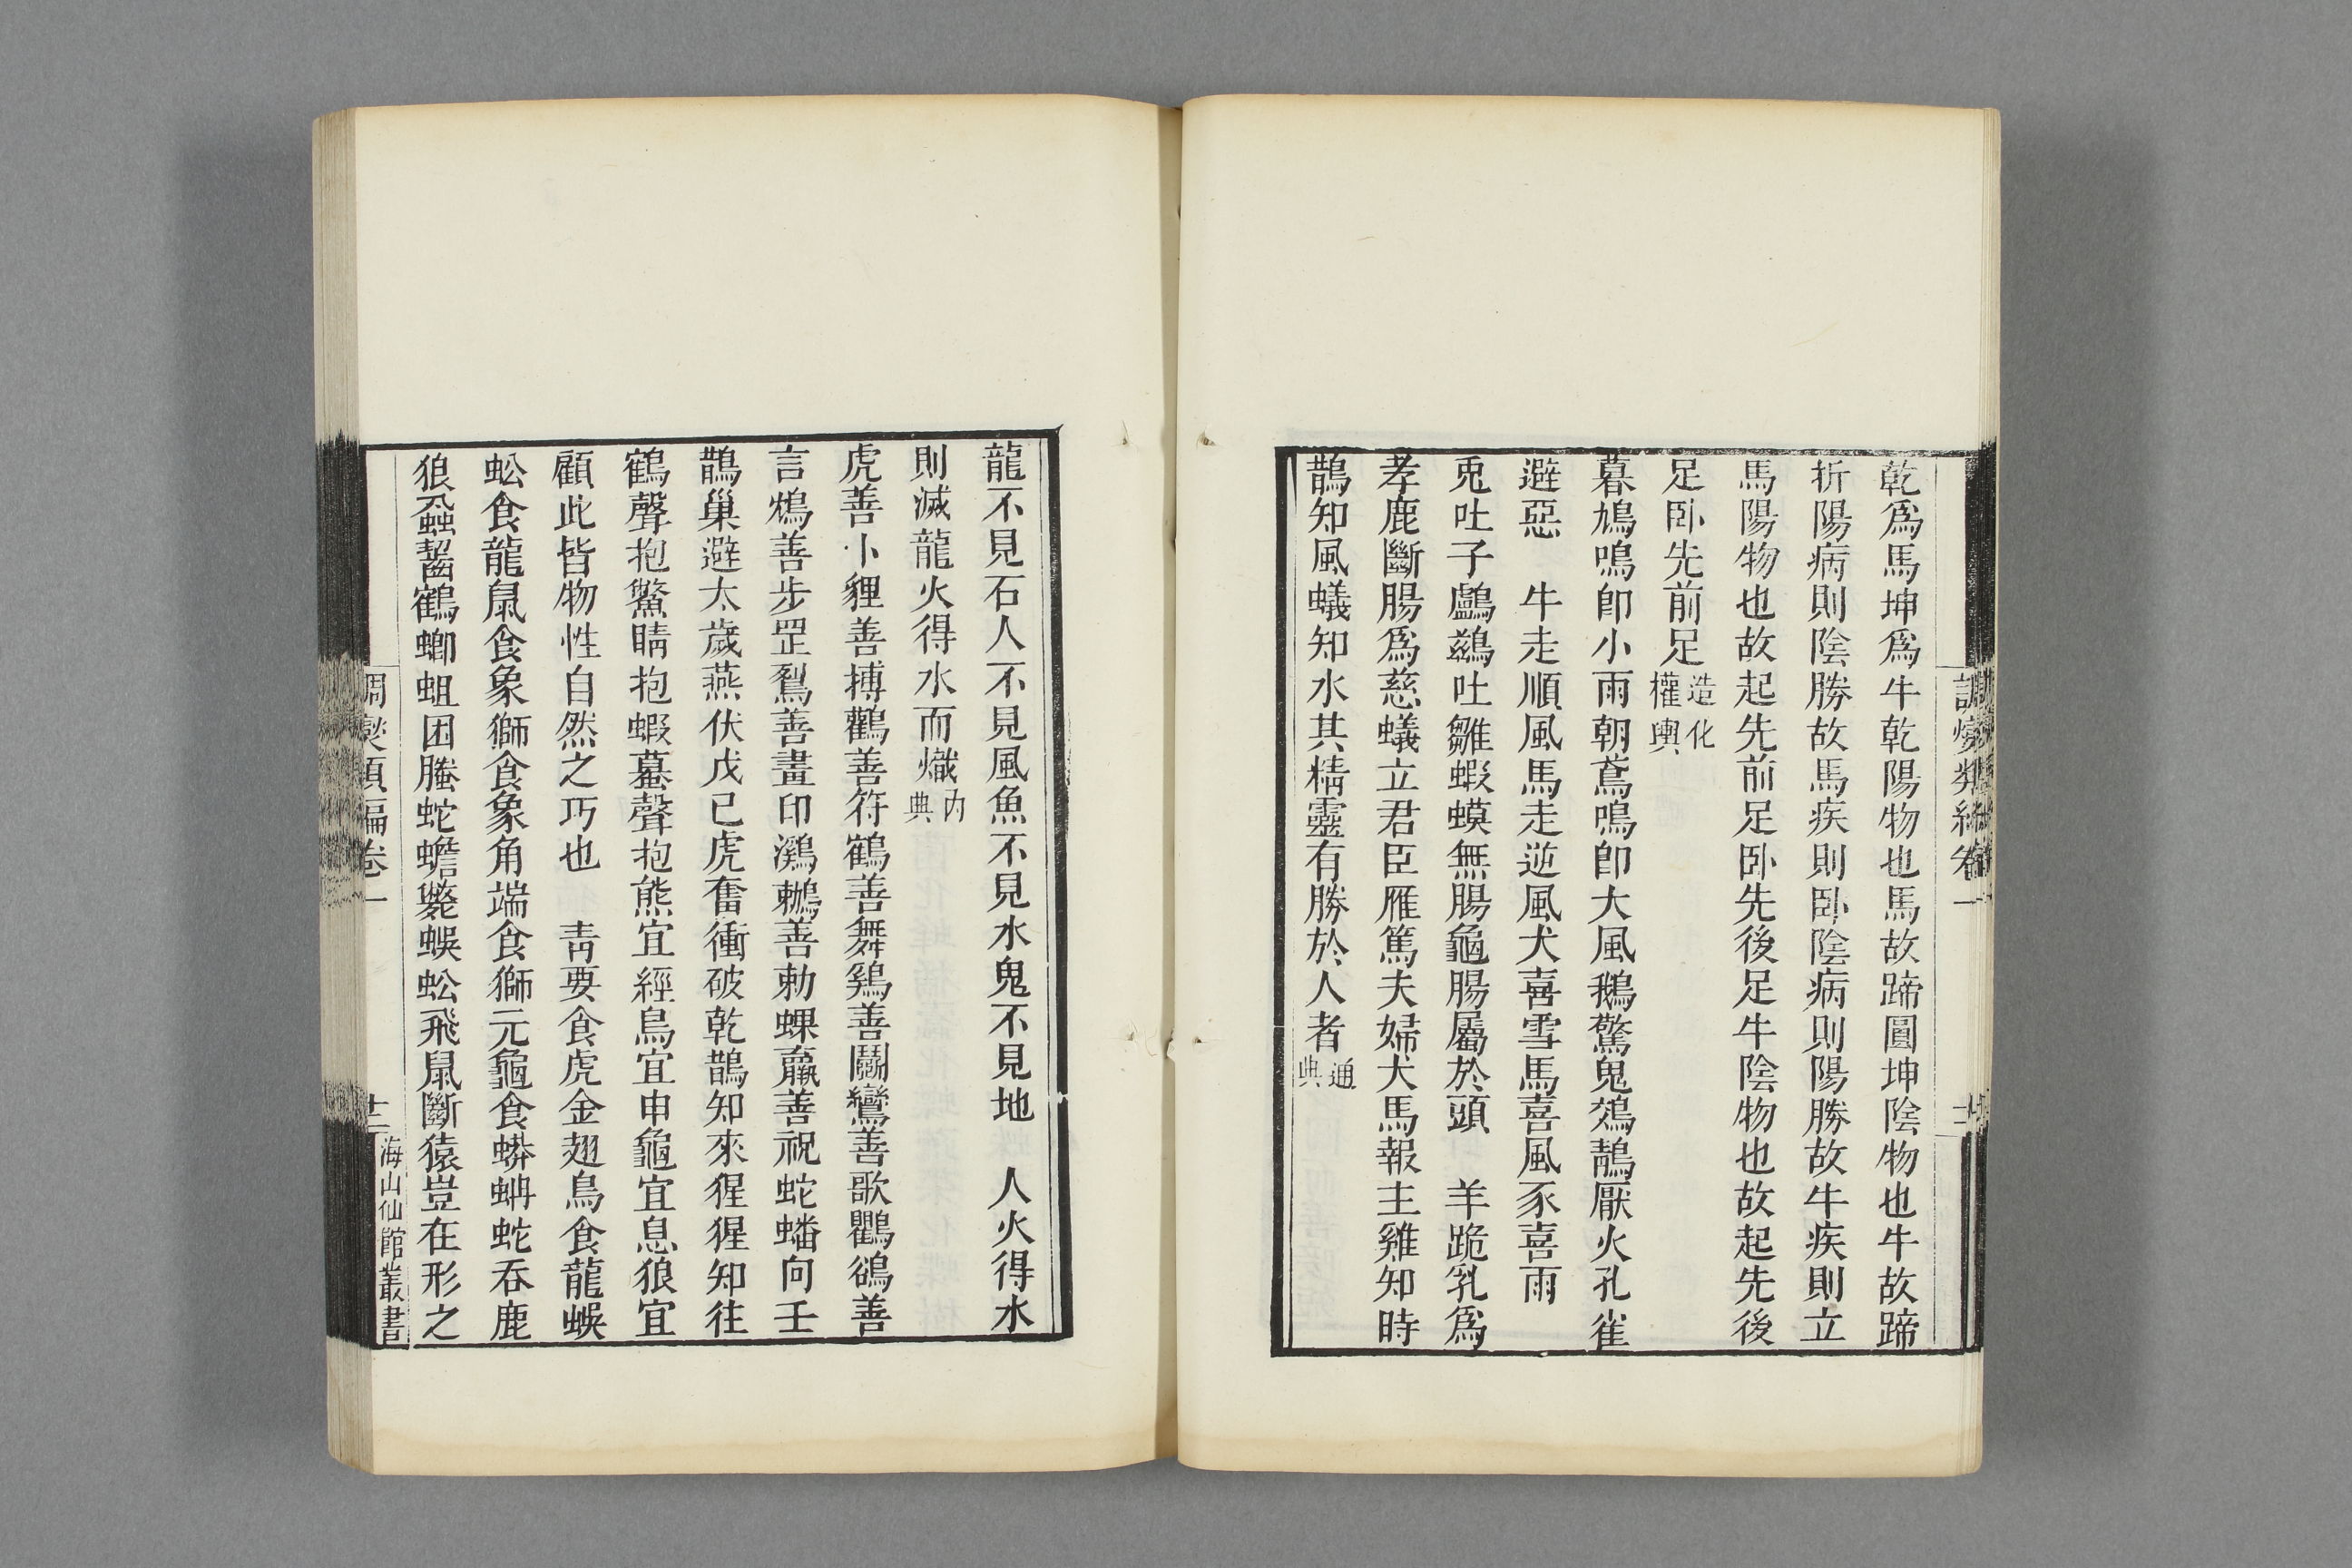 乾爲馬坤爲牛乾陽物也馬故蹄圓坤陰物也牛故蹄
折陽病則陰勝故馬疾則卧陰病則陽勝故牛疾則立
馬陽物也故起先前足卧先後足牛陰物也故起先後
足卧先前足造化權輿
暮鳩鳴卽小雨朝鳶鳴卽大風鵝驚鬼鵁鶄厭火孔雀
避惡　牛走順風馬走逆風犬喜雪馬喜風豕喜雨
兎吐子鸕鷀吐雛蝦蟆無腸龜腸屬於頭　羊跪乳爲
孝鹿斷腸爲慈蟻立君臣雁篤夫婦犬馬報主雞知時
鵲知風蟻知水其精靈有勝於人者通典
龍不見石人不見風魚不見水鬼不見地　人火得水
則滅龍火得水而熾内典
虎善卜貍善搏鸛善符鶴善舞鷄善鬬鸞善歌鸜鵒善
言鴆善步罡鴷善畫印鸂鷘善勅蜾蠃善祝蛇蟠向壬
鵲巢避太歲燕伏戊己虎奮衝破乾鵲知來猩猩知往
鶴聲抱鱉睛抱蝦蟇聲抱熊宜經鳥宜申龜宜息狼宜
顧此皆物性自然之巧也　青要食虎金翅鳥食龍蜈
蚣食龍鼠食象獅食象角端食獅元龜食蟒蚺蛇吞鹿
狼蝨齧鶴蝍蛆困螣蛇蟾斃蜈蚣飛鼠斷猿豈在形之
調燮類編卷一
十二
海山仙館叢書